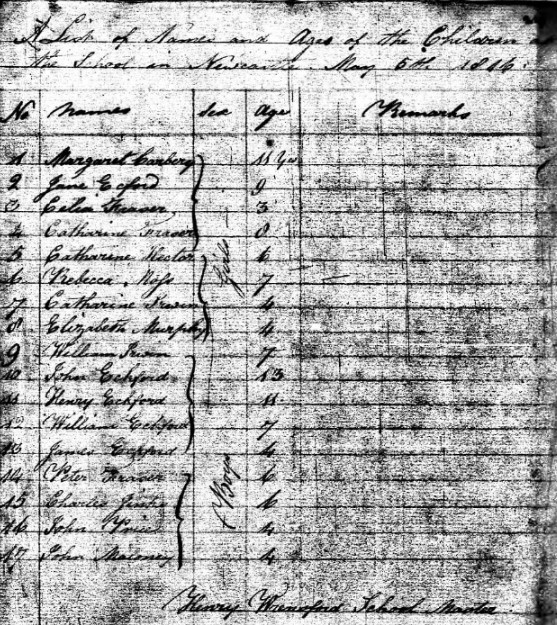 A List of Names and Ages of the Children
the School in Newcastle May 6th 1816.
No Names Sex Age Remarks
1 Margaret 11 yrs
2 Jane Ecford 9
3 Celia Fraser 3
4 Catharine Fraser 8
5 Catharine Hector 6
6 Rebecca Moss 7
7 Catharine Irwin 4
8 Elizabeth Murphy 4
Girls
9 William Irwin 7
10 John Eckford 13
11 Henry Eckford 11
12 William Eckford 7
13 James Eckford 4
14 Peter Fraser 6
15 Charles 6
16 John 4
17 John Maloney 4
Boys
Henry Wrensford School Master